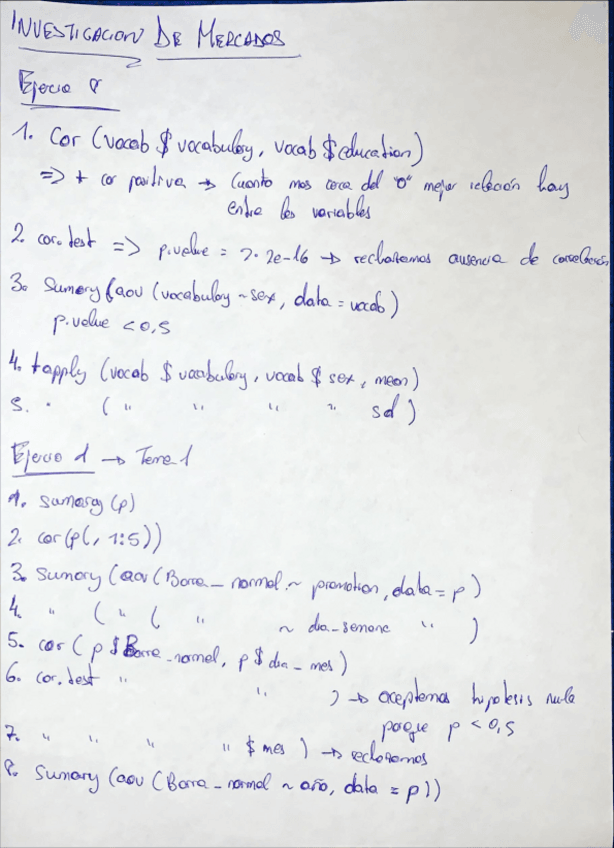 INVESTIGACION DE MERCADOS
Ejercio 0
1. Cor (vocab $ vocabulary, vocab $ education)
=> + cor positiva → Cuanto mas cerca del "0" mejor relación hay
entre las variables
2. cor.test => p.value = 2.2e-16 → rechazamos ausencia de correlación
3. Sumary (aov (vocabulary ~ sex, data = vocab)
p.value < 0,5
4. tapply (vocab $ vocabulary, vocab $ sex, mean)
5. " ( " " " " sd )
Ejercio 1 → Tema 1
1. Sumary (p)
2. cor(p(, 1:5))
3. Sumary (aov (Barra_normal ~ promotion, data = p)
4. " ( " ( " ~ dia_semana " )
5. cor ( p $ Barra_normal, p $ dia_mes )
6. cor.test " " ) → aceptamos hipotesis nula
porque p < 0,5
7. " " " " $ mes ) → rechazamos
8. Sumary (aov (Barra_normal ~ año, data = p))